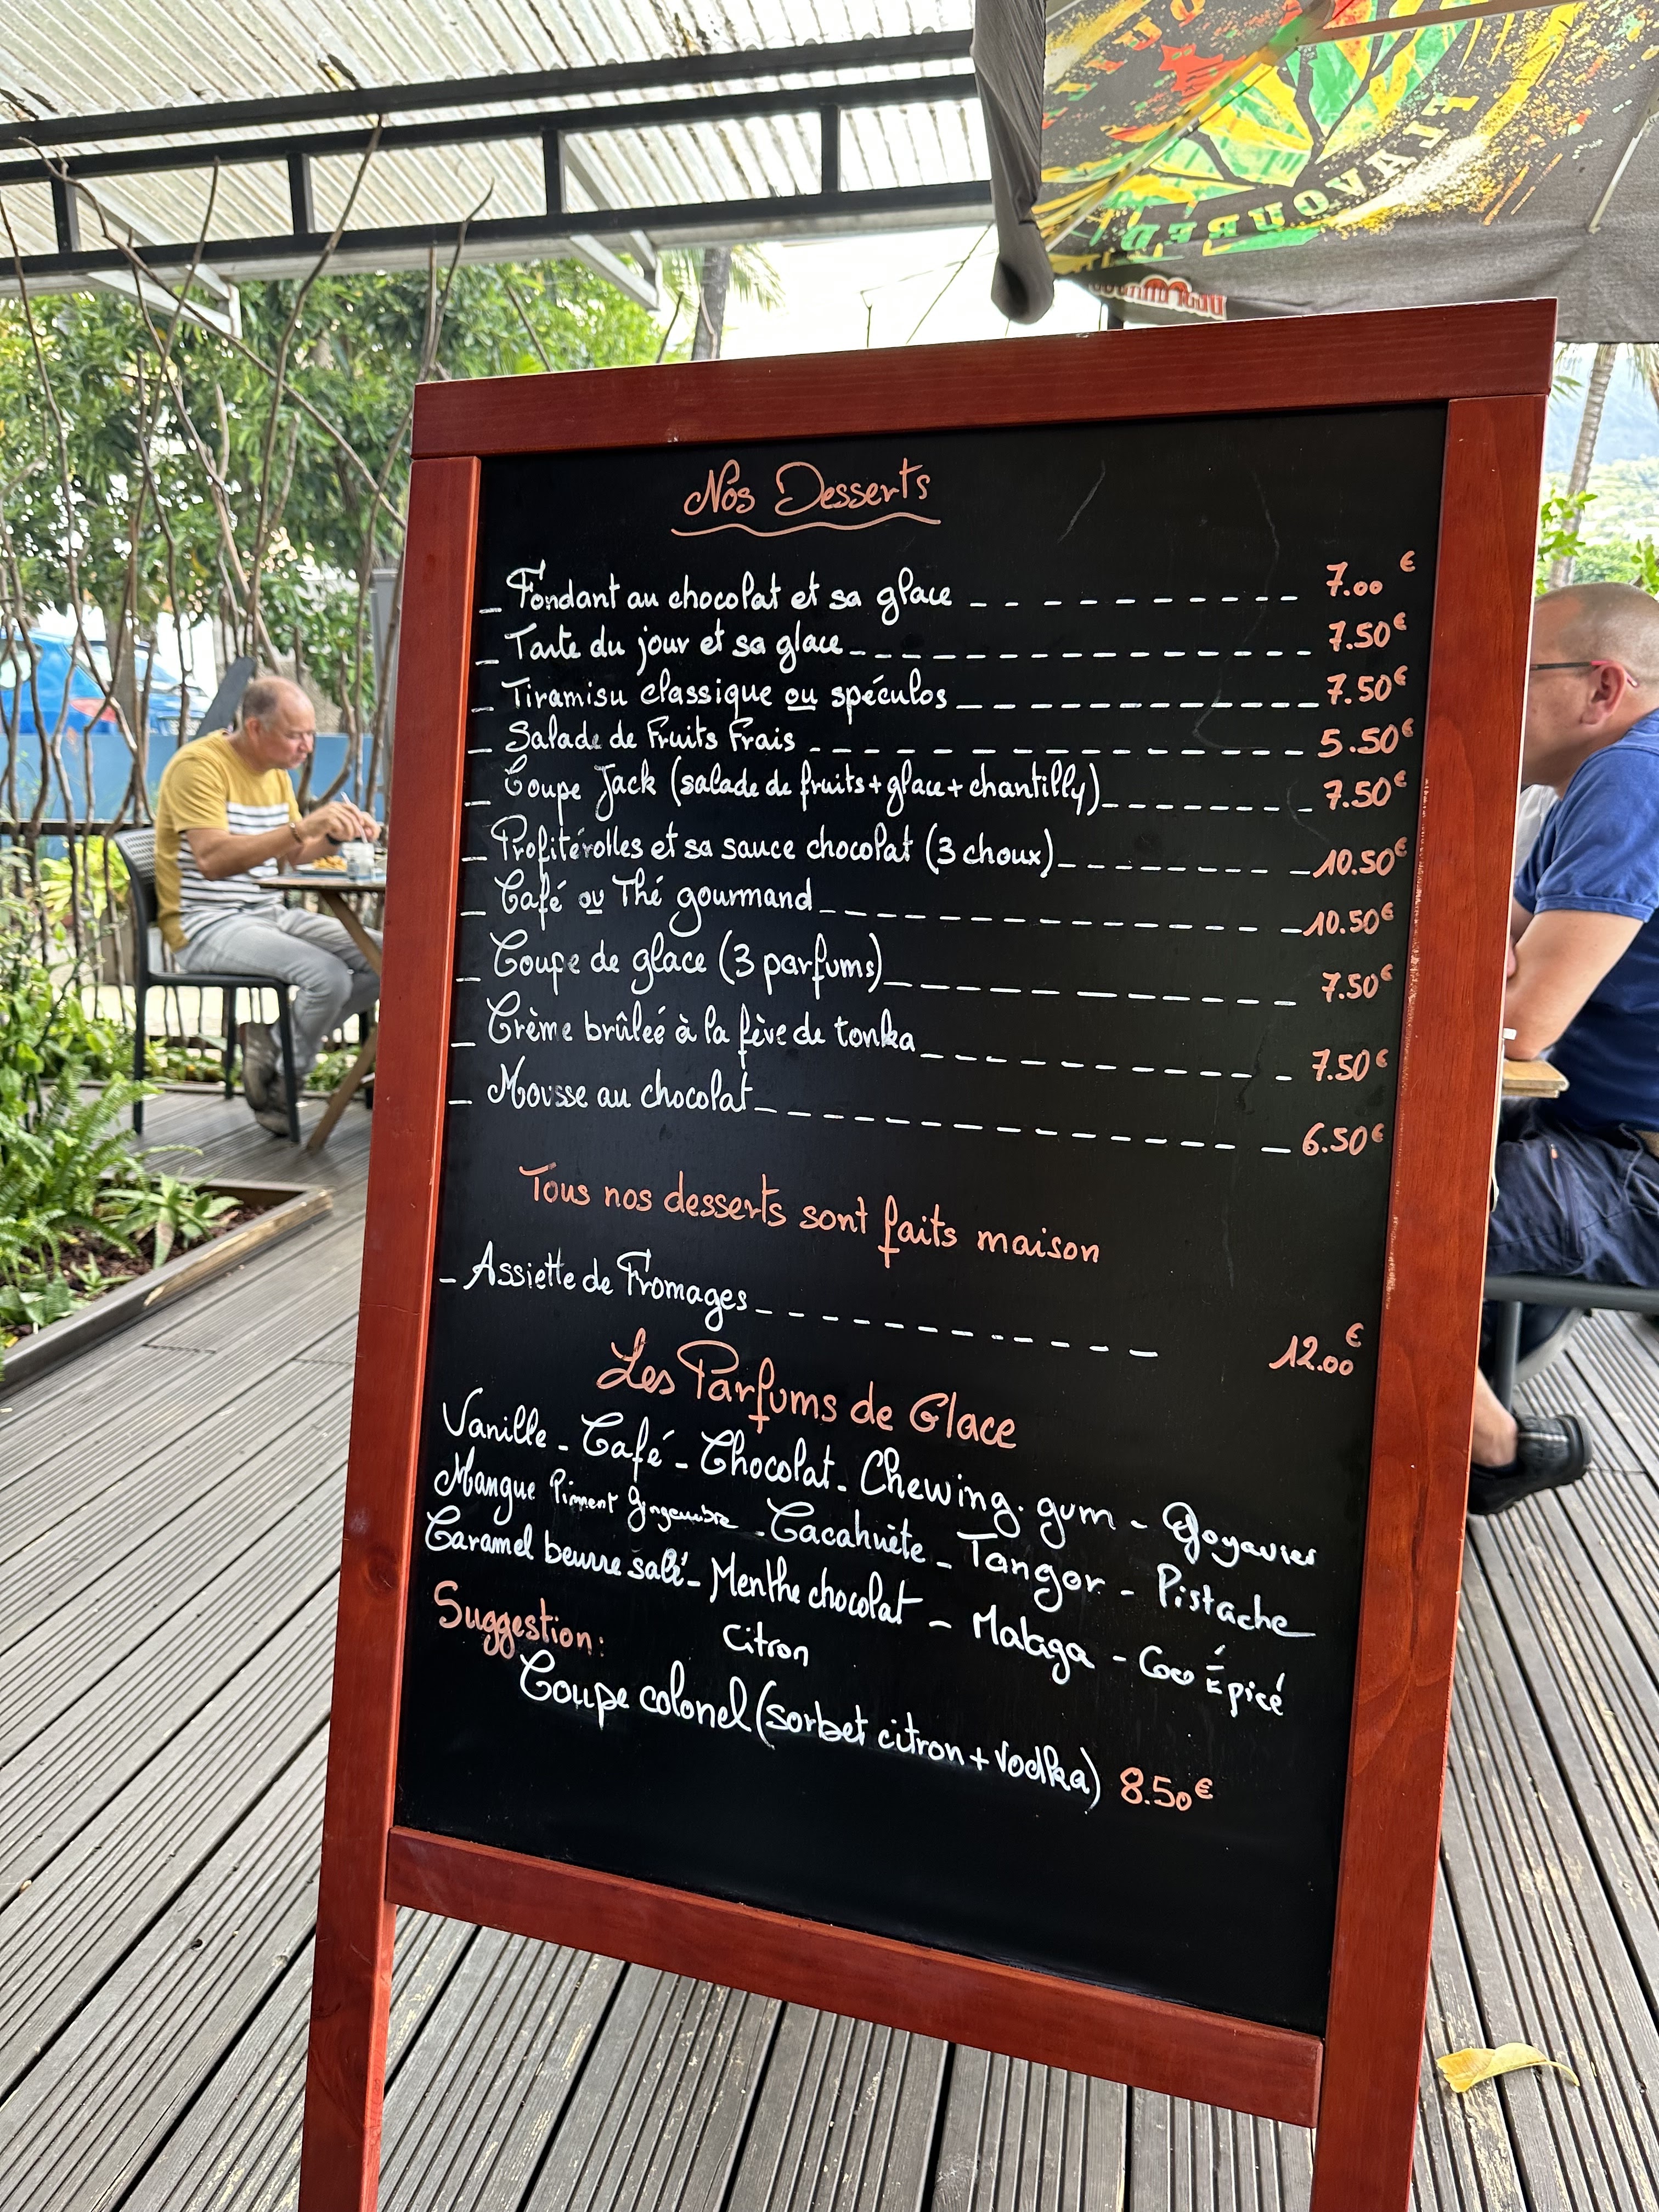 FLAVOURED
Nos Desserts
_ Fondant au chocolat et sa glace _ _ _ _ _ _ _ _ _ _ 7.00 €
_ Tarte du jour et sa glace _ _ _ _ _ _ _ _ _ _ _ _ _ _ 7.50€
_ Tiramisu classique ou spéculos _ _ _ _ _ _ _ _ _ _ _ 7.50€
_ Salade de Fruits Frais _ _ _ _ _ _ _ _ _ _ _ _ _ _ 5.50€
_ Coupe Jack (salade de fruits + glace + chantilly) _ _ _ _ _ _ _ 7.50€
_ Profitérolles et sa sauce chocolat (3 choux) _ _ _ _ _ _ _ _ 10.50€
_ Café ou Thé gourmand _ _ _ _ _ _ _ _ _ _ _ _ _ 10.50€
_ Coupe de glace (3 parfums) _ _ _ _ _ _ _ _ _ _ _ 7.50€
_ Crème brûleé à la fève de tonka _ _ _ _ _ _ _ _ _ _ 7.50€
_ Mousse au chocolat _ _ _ _ _ _ _ _ _ _ _ _ _ _ _ 6.50€
Tous nos desserts sont faits maison
- Assiette de Fromages _ _ _ _ _ _ _ _ _ _ _ 12.00€
Les Parfums de Glace
Vanille - Café - Chocolat - Chewing-gum - Goyavier
Mangue Piment Gingembre - Cacahuète - Tangor - Pistache
Caramel beurre salé - Menthe chocolat - Malaga - Coco Épicé
Citron
Suggestion:
Coupe colonel (sorbet citron + Vodka) 8.50€